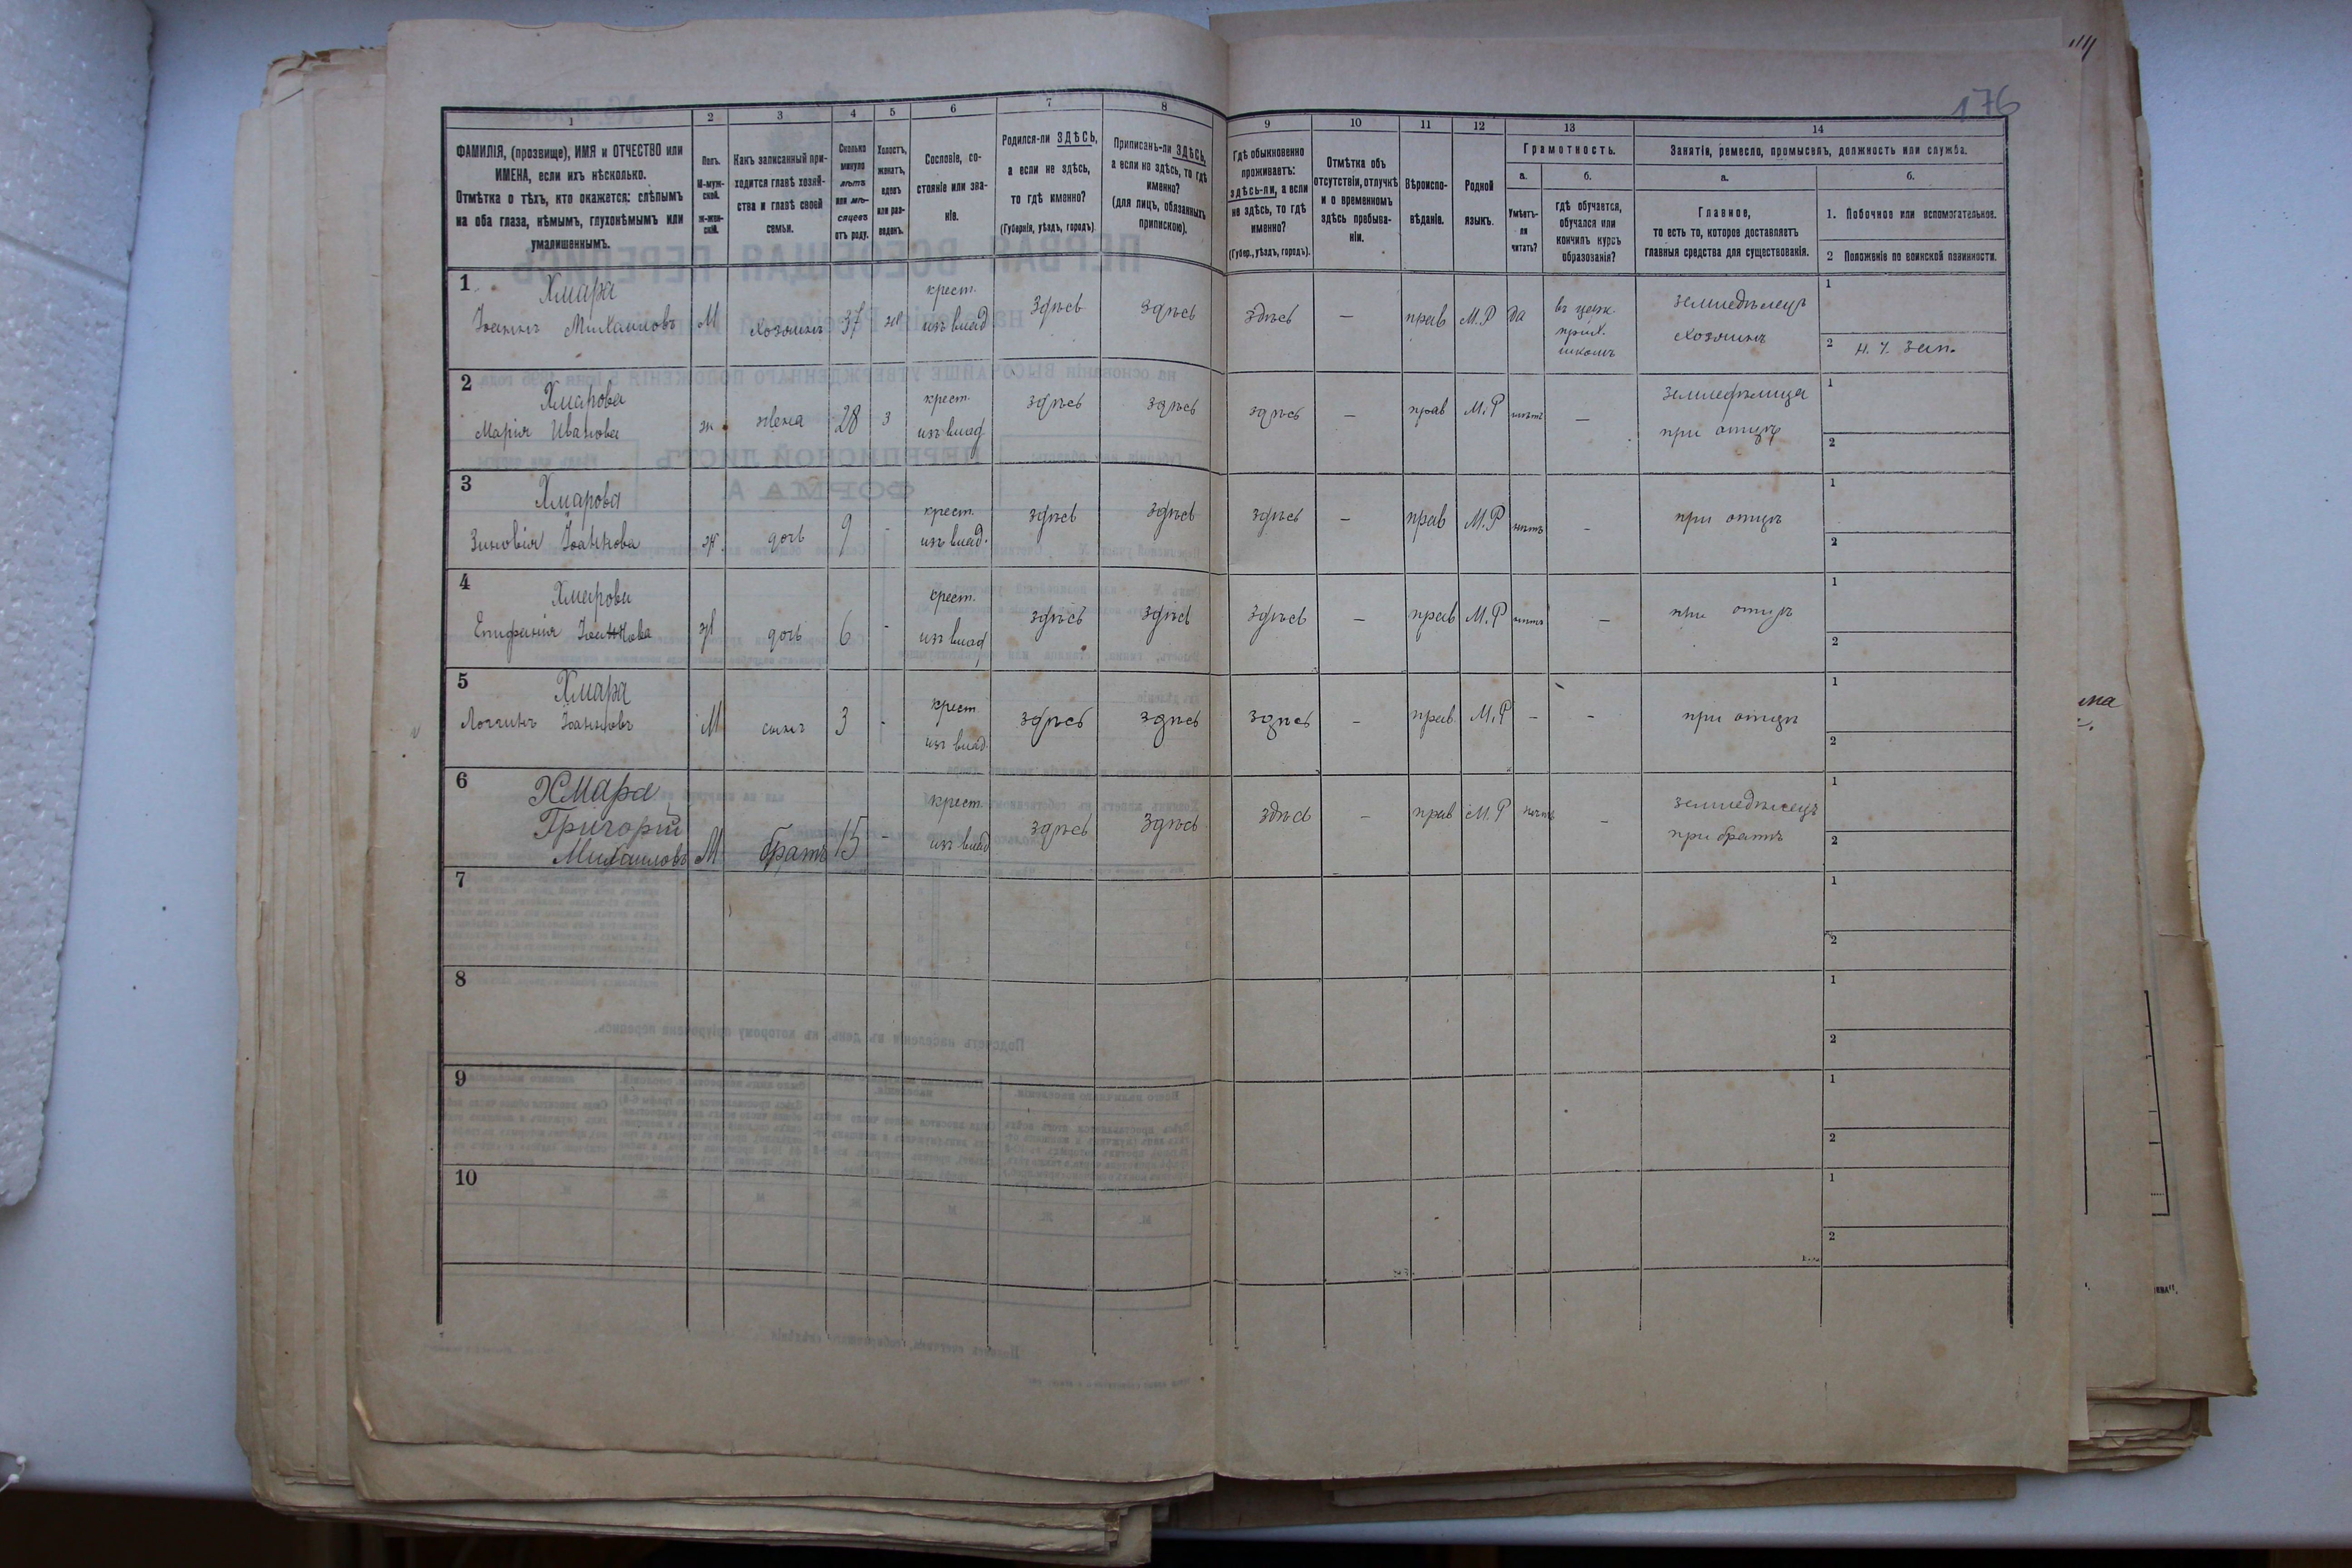 176
1 2 3 4 5 6 7 8 9 10 11 12 13 14
ФАМИЛІЯ, (прозвище), ИМЯ и ОТЧЕСТВО или
ИМЕНА, если ихъ нѣсколько.
Отмѣтка о тѣхъ, кто окажется: слѣпымъ
на оба глаза, нѣмымъ, глухонѣмымъ или
умалишеннымъ.
Полъ.
М-муж-
ской.
ж-жен-
скій.
Какъ записанный при-
ходится главѣ хозяй-
ства и главѣ своей
семьи.
Сколько
минуло
лѣтъ
или мѣ-
сяцевъ
отъ роду.
Холостъ,
женатъ,
вдовъ
или раз-
веденъ.
Сословіе, со-
стояніе или зва-
ніе.
Родился-ли ЗДѢСЬ,
а если не здѣсь,
то гдѣ именно?
(Губернія, уѣздъ, городъ)
Приписанъ-ли ЗДѢСЬ,
а если не здѣсь, то гдѣ
именно?
(для лицъ, обязанныхъ
припискою).
Гдѣ обыкновенно
проживаетъ:
здѣсь-ли, а если
не здѣсь, то гдѣ
именно?
(Губер., уѣздъ, городъ).
Отмѣтка объ
отсутствіи, отлучкѣ
и о временномъ
здѣсь пребыва-
ніи.
Вѣроиспо-
вѣданіе.
Родной
языкъ.
Грамотность.
а.
Умѣетъ-
ли
читать?
б.
гдѣ обучается,
обучался или
кончилъ курсъ
образованія?
Занятія, ремесло, промыселъ, должность или служба.
а.
Главное,
то есть то, которое доставляетъ
главныя средства для существованія.
б.
1. Побочное или вспомогательное.
2 Положеніе по воинской повинности.
1 Хмара
Іоаннъ Михаиловъ М хозяинъ 37 крест. изъ влад здѣсь здѣсь здѣсь — прав М.Р да въ церк. прих. школѣ земледѣлецъ хозяинъ 1
2
2 Хмарова
Марія Иванова ж жена 28 з крест. изъ влад здѣсь здѣсь здѣсь — прав М.Р нѣтъ — при отцѣ 1
2
3 Хмарова
Зиновія Іоаннова ж. дочь 9 - крест. изъ влад. здѣсь здѣсь здѣсь — прав М.Р нѣтъ - при отцѣ 1
2
4 Хмарова
Епифанія Іоаннова ж дочь 6 - крест. изъ влад здѣсь здѣсь здѣсь — прав М.Р нѣтъ — при отцѣ 1
2
5 Хмара
Логгинъ Іоанновъ М сынъ 3 - крест изъ влад. здѣсь здѣсь здѣсь - прав М.Р - - при отцѣ 1
2
6 Хмара
Григорій
Михаиловъ М братъ 15 - крест. изъ влад здѣсь здѣсь здѣсь - прав М.Р нѣтъ — земледѣлецъ при братѣ 1
2
7 1
2
8 1
2
9 1
2
10 1
2